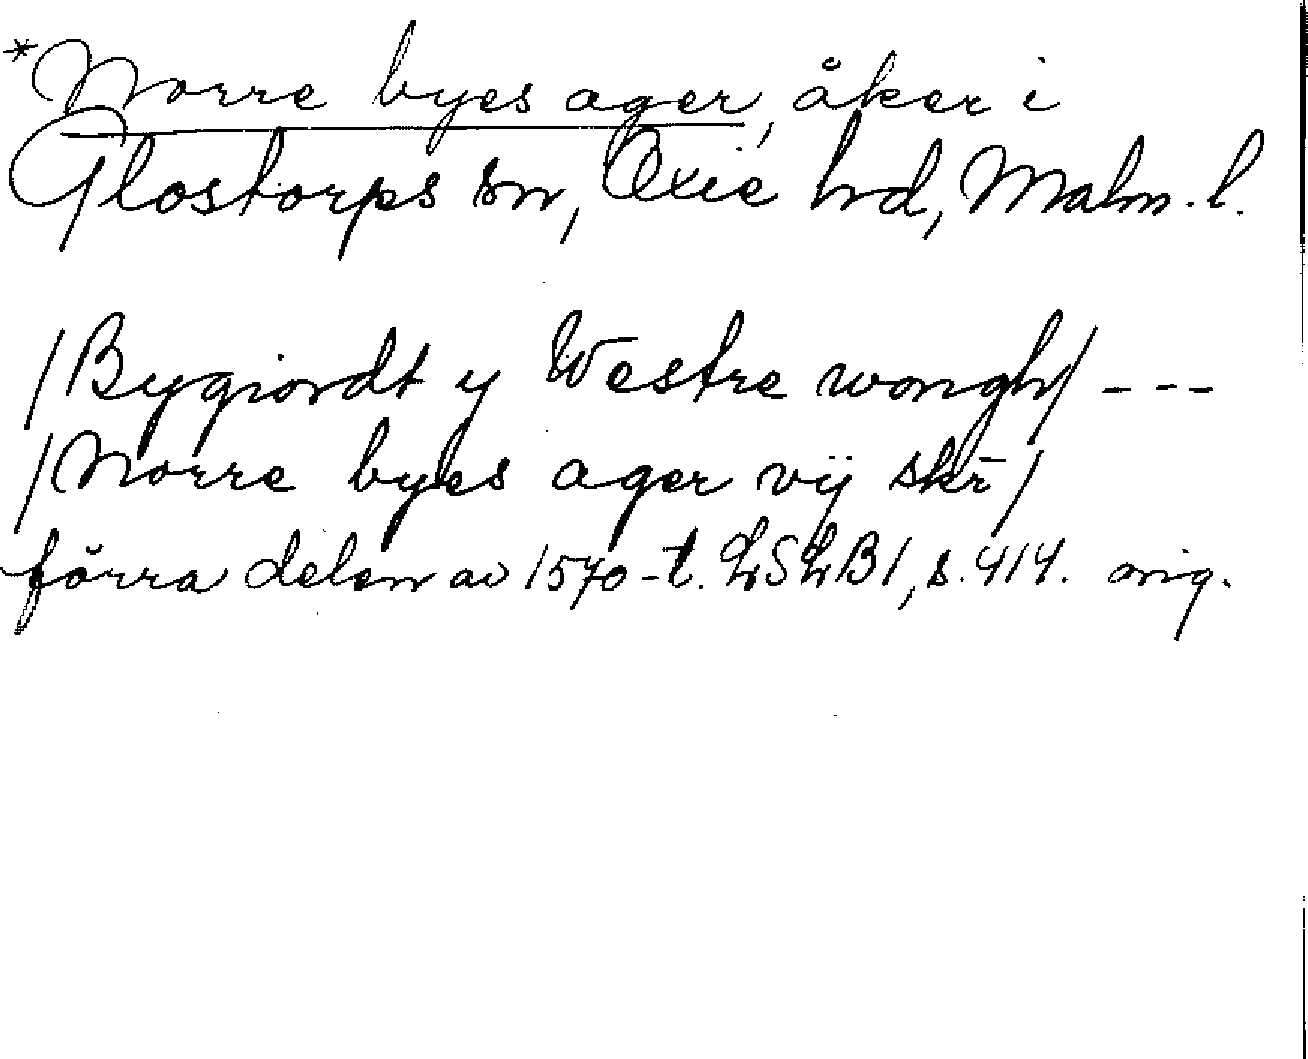 *Norre byes ager, åker i
Glostorps sn, Oxie hd, Malm. l.
/Bygiordt y Westre wongh/ ---
/Norre byes ager vij skr̄/
förra delen av 1570-t. LSLB1, s. 414. orig.